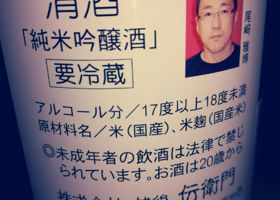 清酒
「純米吟醸酒」
要冷蔵
尾﨑 雅博
アルコール分／17度以上18度未満
原材料名／米（国産）、米麹（国産米）
◎未成年者の飲酒は法律で禁じ
られています。お酒は20歳から
伝衛門